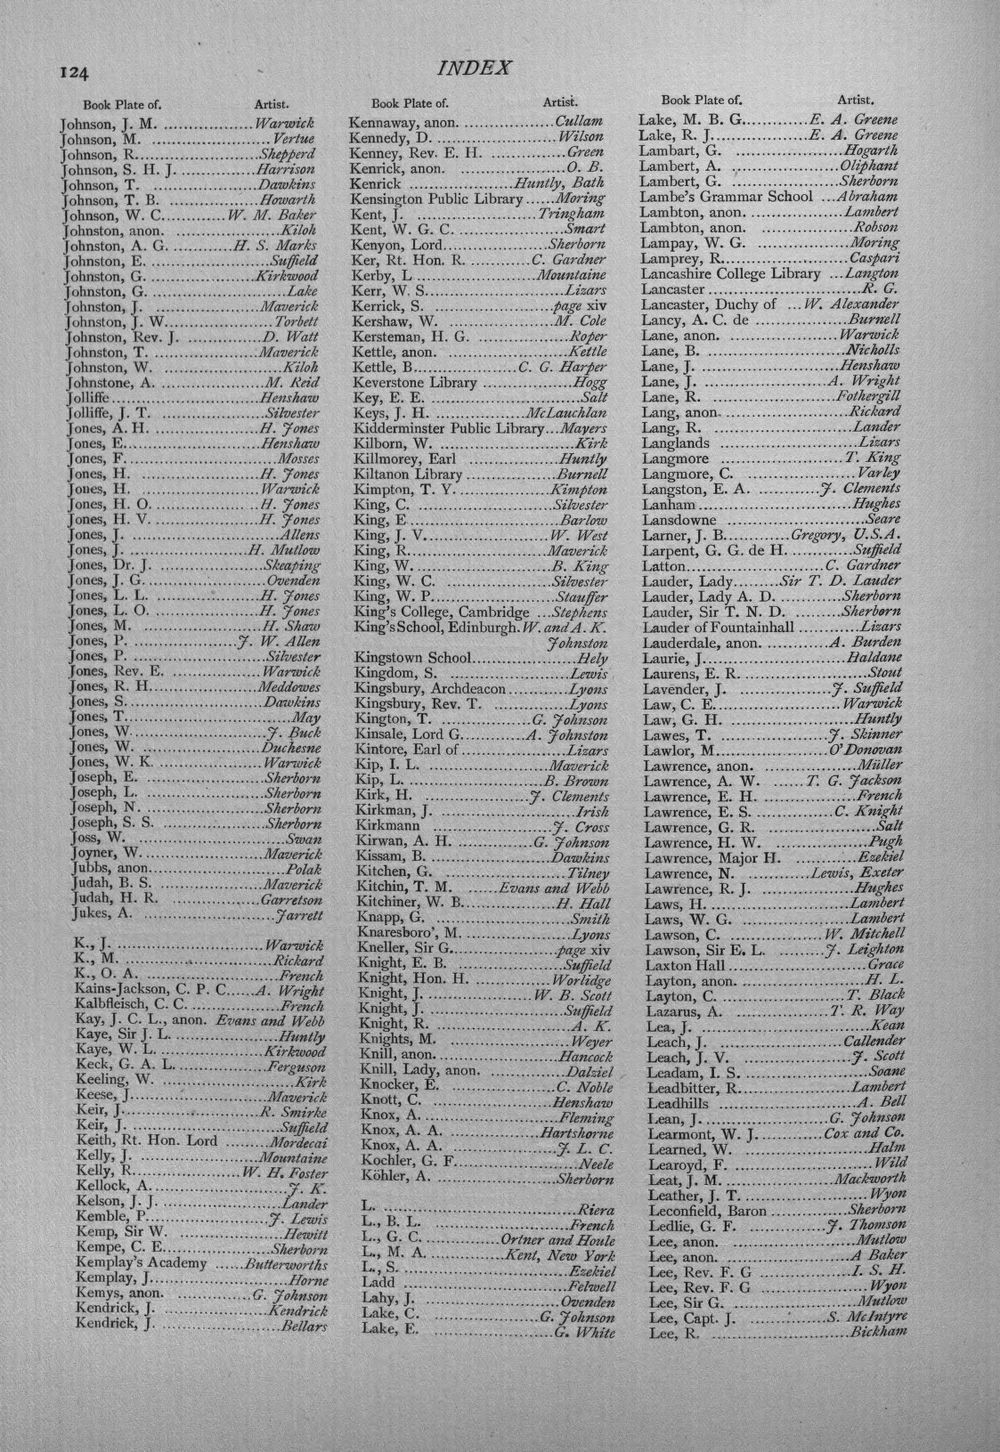 124
INDEX
Book Plate of. Artist.
Johnson, J. M. ..................Warwick
Johnson, M. ........................Vertue
Johnson, R..........................Shepperd
Johnson, S. H. J. ................Harrison
Johnson, T. .....................Dawkins
Johnson, T. B. ..................Howarth
Johnson, W. C.............W. M. Baker
Johnston, anon. ........................Kiloh
Johnston, A. G. ............H. S. Marks
Johnston, E. ........................Suffield
Johnston, G. ......................Kirkwood
Johnston, G. ............................Lake
Johnston, J. .......................Maverick
Johnston, J. W......................Torbett
Johnston, Rev. J. ...............D. Watt
Johnston, T. ......................Maverick
Johnston, W. ..........................Kiloh
Johnstone, A. .....................M. Reid
Jolliffe..............................Henshaw
Jolliffe, J. T. .......................Silvester
Jones, A. H. .......................H. Jones
Jones, E............................Henshaw
Jones, F..............................Mosses
Jones, H. ..........................H. Jones
Jones, H. ........................Warwick
Jones, H. O. ......................H. Jones
Jones, H. V. ......................H. Jones
Jones, J. ..............................Allens
Jones, J. .........................H. Mutlow
Jones, Dr. J. .......................Skeaping
Jones, J. G. .......................Ovenden
Jones, L. L. .......................H. Jones
Jones, L. O. ......................H. Jones
Jones, M. ........................H. Shaw
Jones, P. .....................J. W. Allen
Jones, P. ...........................Silvester
Jones, Rev. E. ....................Warwick
Jones, R. H......................Meddowes
Jones, S............................Dawkins
Jones, T..................................May
Jones, W...........................J. Buck
Jones, W. ........................Duchesne
Jones, W. K. .....................Warwick
Joseph, E. .........................Sherborn
Joseph, L. .........................Sherborn
Joseph, N. ........................Sherborn
Joseph, S. S. .....................Sherborn
Joss, W. ................................Swan
Joyner, W. ........................Maverick
Jubbs, anon...........................Polak
Judah, B. S. ......................Maverick
Judah, H. R. .....................Garretson
Jukes, A. ...........................Jarrett
K., J. .............................Warwick
K., M. ..............................Rickard
K., O. A. ..........................French
Kains-Jackson, C. P. C......A. Wright
Kalbfleisch, C. C. ..................French
Kay, J. C. L., anon. Evans and Webb
Kaye, Sir J. L. ......................Huntly
Kaye, W. L. .....................Kirkwood
Keck, G. A. L....................Ferguson
Keeling, W. ............................Kirk
Keese, J...........................Maverick
Keir, J...........................R. Smirke
Keir, J. .............................Suffield
Keith, Rt. Hon. Lord .........Mordecai
Kelly, J. ........................Mountaine
Kelly, R......................W. H. Foster
Kellock, A............................J. K.
Kelson, J. J. .........................Lander
Kemble, P.........................J. Lewis
Kemp, Sir W. .......................Hewitt
Kempe, C. E.....................Sherborn
Kemplay's Academy ......Butterworths
Kemplay, J...........................Horne
Kemys, anon. ...............G. Johnson
Kendrick, J. ......................Kendrick
Kendrick, J. ........................Bellars
Book Plate of. Artist.
Kennaway, anon. ..................Cullam
Kennedy, D. ........................Wilson
Kenney, Rev. E. H. ...............Green
Kenrick, anon. .....................O. B.
Kenrick .....................Huntly, Bath
Kensington Public Library......Moring
Kent, J. ........................Tringham
Kent, W. G. C. .....................Smart
Kenyon, Lord.....................Sherborn
Ker, Rt. Hon. R. ............C. Gardner
Kerby, L ........................Mountaine
Kerr, W. S............................Lizars
Kerrick, S. .........................page xiv
Kershaw, W. .....................M. Cole
Kersteman, H. G. ..................Roper
Kettle, anon. ..........................Kettle
Kettle, B.....................C. G. Harper
Keverstone Library ..................Hogg
Key, E. E. ..............................Salt
Keys, J. H. ..................McLauchlan
Kidderminster Public Library...Mayers
Kilborn, W. ............................Kirk
Killmorey, Earl ..................Huntly
Kiltanon Library ..................Burnell
Kimpton, T. Y...................Kimpton
King, C. ...........................Silvester
King, E ..............................Barlow
King, J. V.........................W. West
King, R............................Maverick
King, W. ...........................B. King
King, W. C. .....................Silvester
King, W. P........................Stauffer
King's College, Cambridge ...Stephens
King's School, Edinburgh. W. and A. K.
Johnston
Kingstown School.....................Hely
Kingdom, S. ..........................Lewis
Kingsbury, Archdeacon............Lyons
Kingsbury, Rev. T. ...............Lyons
Kington, T. ..................G. Johnson
Kinsale, Lord G............A. Johnston
Kintore, Earl of.....................Lizars
Kip, I. L. ........................Maverick
Kip, L. ...........................B. Brown
Kirk, H. .....................J. Clements
Kirkman, J. ...........................Irish
Kirkmann .......................J. Cross
Kirwan, A. H. ...............G. Johnson
Kissam, B. ........................Dawkins
Kitchen, G. ..........................Tilney
Kitchin, T. M. ......Evans and Webb
Kitchiner, W. B..................H. Hall
Knapp, G. ...........................Smith
Knaresboro', M. .....................Lyons
Kneller, Sir G.....................page xiv
Knight, E. B. .....................Suffield
Knight, Hon. H. ...............Worlidge
Knight, J. .....................W. B. Scott
Knight, J. .........................Suffield
Knight, R. ..........................A. K.
Knights, M. ........................Weyer
Knill, anon........................Hancock
Knill, Lady, anon. ...............Dalziel
Knocker, E. .....................C. Noble
Knott, C. ........................Henshaw
Knox, A. ..........................Fleming
Knox, A. A. ..................Hartshorne
Knox, A. A. .....................J. L. C.
Kochler, G. F........................Neele
Köhler, A. .......................Sherborn
L. ....................................Riera
L., B. L. ............................French
L., G. C. ............Ortner and Houle
L., M. A. ................Kent, New York
L., S. ................................Ezekiel
Ladd ................................Felwell
Lahy, J. ...........................Ovenden
Lake, C. .......................G. Johnson
Lake, E. ........................G. White
Book Plate of. Artist.
Lake, M. B. G.............E. A. Greene
Lake, R. J..................E. A. Greene
Lambart, G. .....................Hogarth
Lambert, A. .....................Oliphant
Lambert, G. .....................Sherborn
Lambe's Grammar School ...Abraham
Lambton, anon. ..................Lambert
Lambton, anon. ..................Robson
Lampay, W. G. ..................Moring
Lamprey, R........................Caspari
Lancashire College Library ...Langton
Lancaster..............................R. G.
Lancaster, Duchy of ...W. Alexander
Lancy, A. C. de ..................Burnell
Lane, anon. .....................Warwick
Lane, B. ..........................Nicholls
Lane, J. ..........................Henshaw
Lane, J. .......................A. Wright
Lane, R. ........................Fothergill
Lang, anon........................Rickard
Lang, R. ............................Lander
Langlands ..........................Lizars
Langmore .......................T. King
Langmore, C. ......................Varley
Langston, E. A. ............J. Clements
Lanham.............................Hughes
Lansdowne ..........................Seare
Larner, J. B............Gregory, U.S.A.
Larpent, G. G. de H. ............Suffield
Latton...........................C. Gardner
Lauder, Lady.........Sir T. D. Lauder
Lauder, Lady A. D. ............Sherborn
Lauder, Sir T. N. D. .........Sherborn
Lauder of Fountainhall ............Lizars
Lauderdale, anon. ............A. Burden
Laurie, J...........................Haldane
Laurens, E. R........................Stout
Lavender, J. ..................J. Suffield
Law, C. E........................Warwick
Law, G. H. ........................Huntly
Lawes, T. .....................J. Skinner
Lawlor, M......................O'Donovan
Lawrence, anon. ..................Müller
Lawrence, A. W. ......T. G. Jackson
Lawrence, E. H. ..................French
Lawrence, E. S...............C. Knight
Lawrence, G. R. .....................Salt
Lawrence, H. W. ..................Pugh
Lawrence, Major H. ............Ezekiel
Lawrence, N. ............Lewis, Exeter
Lawrence, R. J. ..................Hughes
Laws, H...........................Lambert
Laws, W. G. .....................Lambert
Lawson, C. ..................W. Mitchell
Lawson, Sir E. L. .........J. Leighton
Laxton Hall..........................Grace
Layton, anon. .......................H. L.
Layton, C. .......................T. Black
Lazarus, A. .....................T. R. Way
Lea, J. .................................Kean
Leach, J. ........................Callender
Leach, J. V. .....................J. Scott
Leadam, I. S. ........................Soane
Leadbitter, R.....................Lambert
Leadhills ..........................A. Bell
Lean, J........................G. Johnson
Learmont, W. J.............Cox and Co.
Learned, W. ........................Halm
Learoyd, F. ..........................Wild
Leat, J. M.....................Mackworth
Leather, J. T........................Wyon
Leconfield, Baron ...............Sherborn
Ledlie, G. F. ..................J. Thomson
Lee, anon. ........................Mutlow
Lee, anon. ......................A Baker
Lee, Rev. F. G ..................I. S. H.
Lee, Rev. F. G .....................Wyon
Lee, Sir G. .........................Mutlow
Lee, Capt. J. ...............S. McIntyre
Lee, R. ...........................Bickham